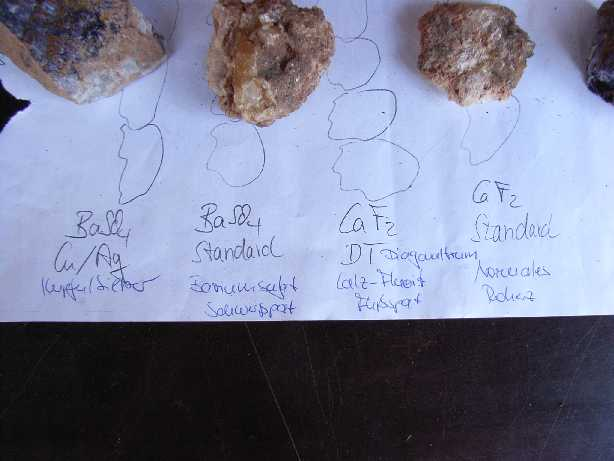 BaSO4
Cu/Ag
Kupfer/Silber
BaSO4
Standard
Bariumsulfat
Schwerspat
CaF2
DT Diagnultrum
Calz-Fluorit
Flußspat
CaF2
Standard
Normales
Roherz